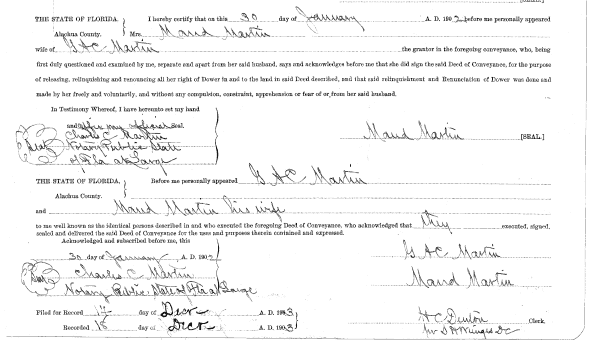 THE STATE OF FLORIDA. I hereby certify that on this 30 day of January A. D. 190 2 before me personally appeared
Alachua County. Mrs. Maud Martin
wife of G. A. C. Martin the grantor in the foregoing conveyance, who, being
first duly questioned and examined by me, separate and apart from her said husband, says and acknowledges before me that she did sign the said Deed of Conveyance, for the purpose
of releasing, relinquishing and renouncing all her right of Dower in and to the land in said Deed described, and that said relinquishment and Renunciation of Dower was done and
made by her freely and voluntarily, and without any compulsion, constraint, apprehension or fear of or from her said husband.
In Testimony Whereof, I have hereunto set my hand
and affix my official seal.
Charles C. Martin
Seal Notary Public State
of Fla at Large
Maud Martin [SEAL]
THE STATE OF FLORIDA. Before me personally appeared G. A. C. Martin
Alachua County.
and Maud Martin his wife
to me well known as the identical persons described in and who executed the foregoing Deed of Conveyance, who acknowledged that they executed, signed,
sealed and delivered the said Deed of Conveyance for the uses and purposes therein contained and expressed.
Acknowledged and subscribed before me, this
30 day of January A. D. 190 G. A. C. Martin
Seal Charles C. Martin Maud Martin
Notary Public. State of Fla at Large
Filed for Record 17 day of Decr A. D. 1903 H C Denton Clerk.
Recorded 18 day of Decr A. D. 1903 D C